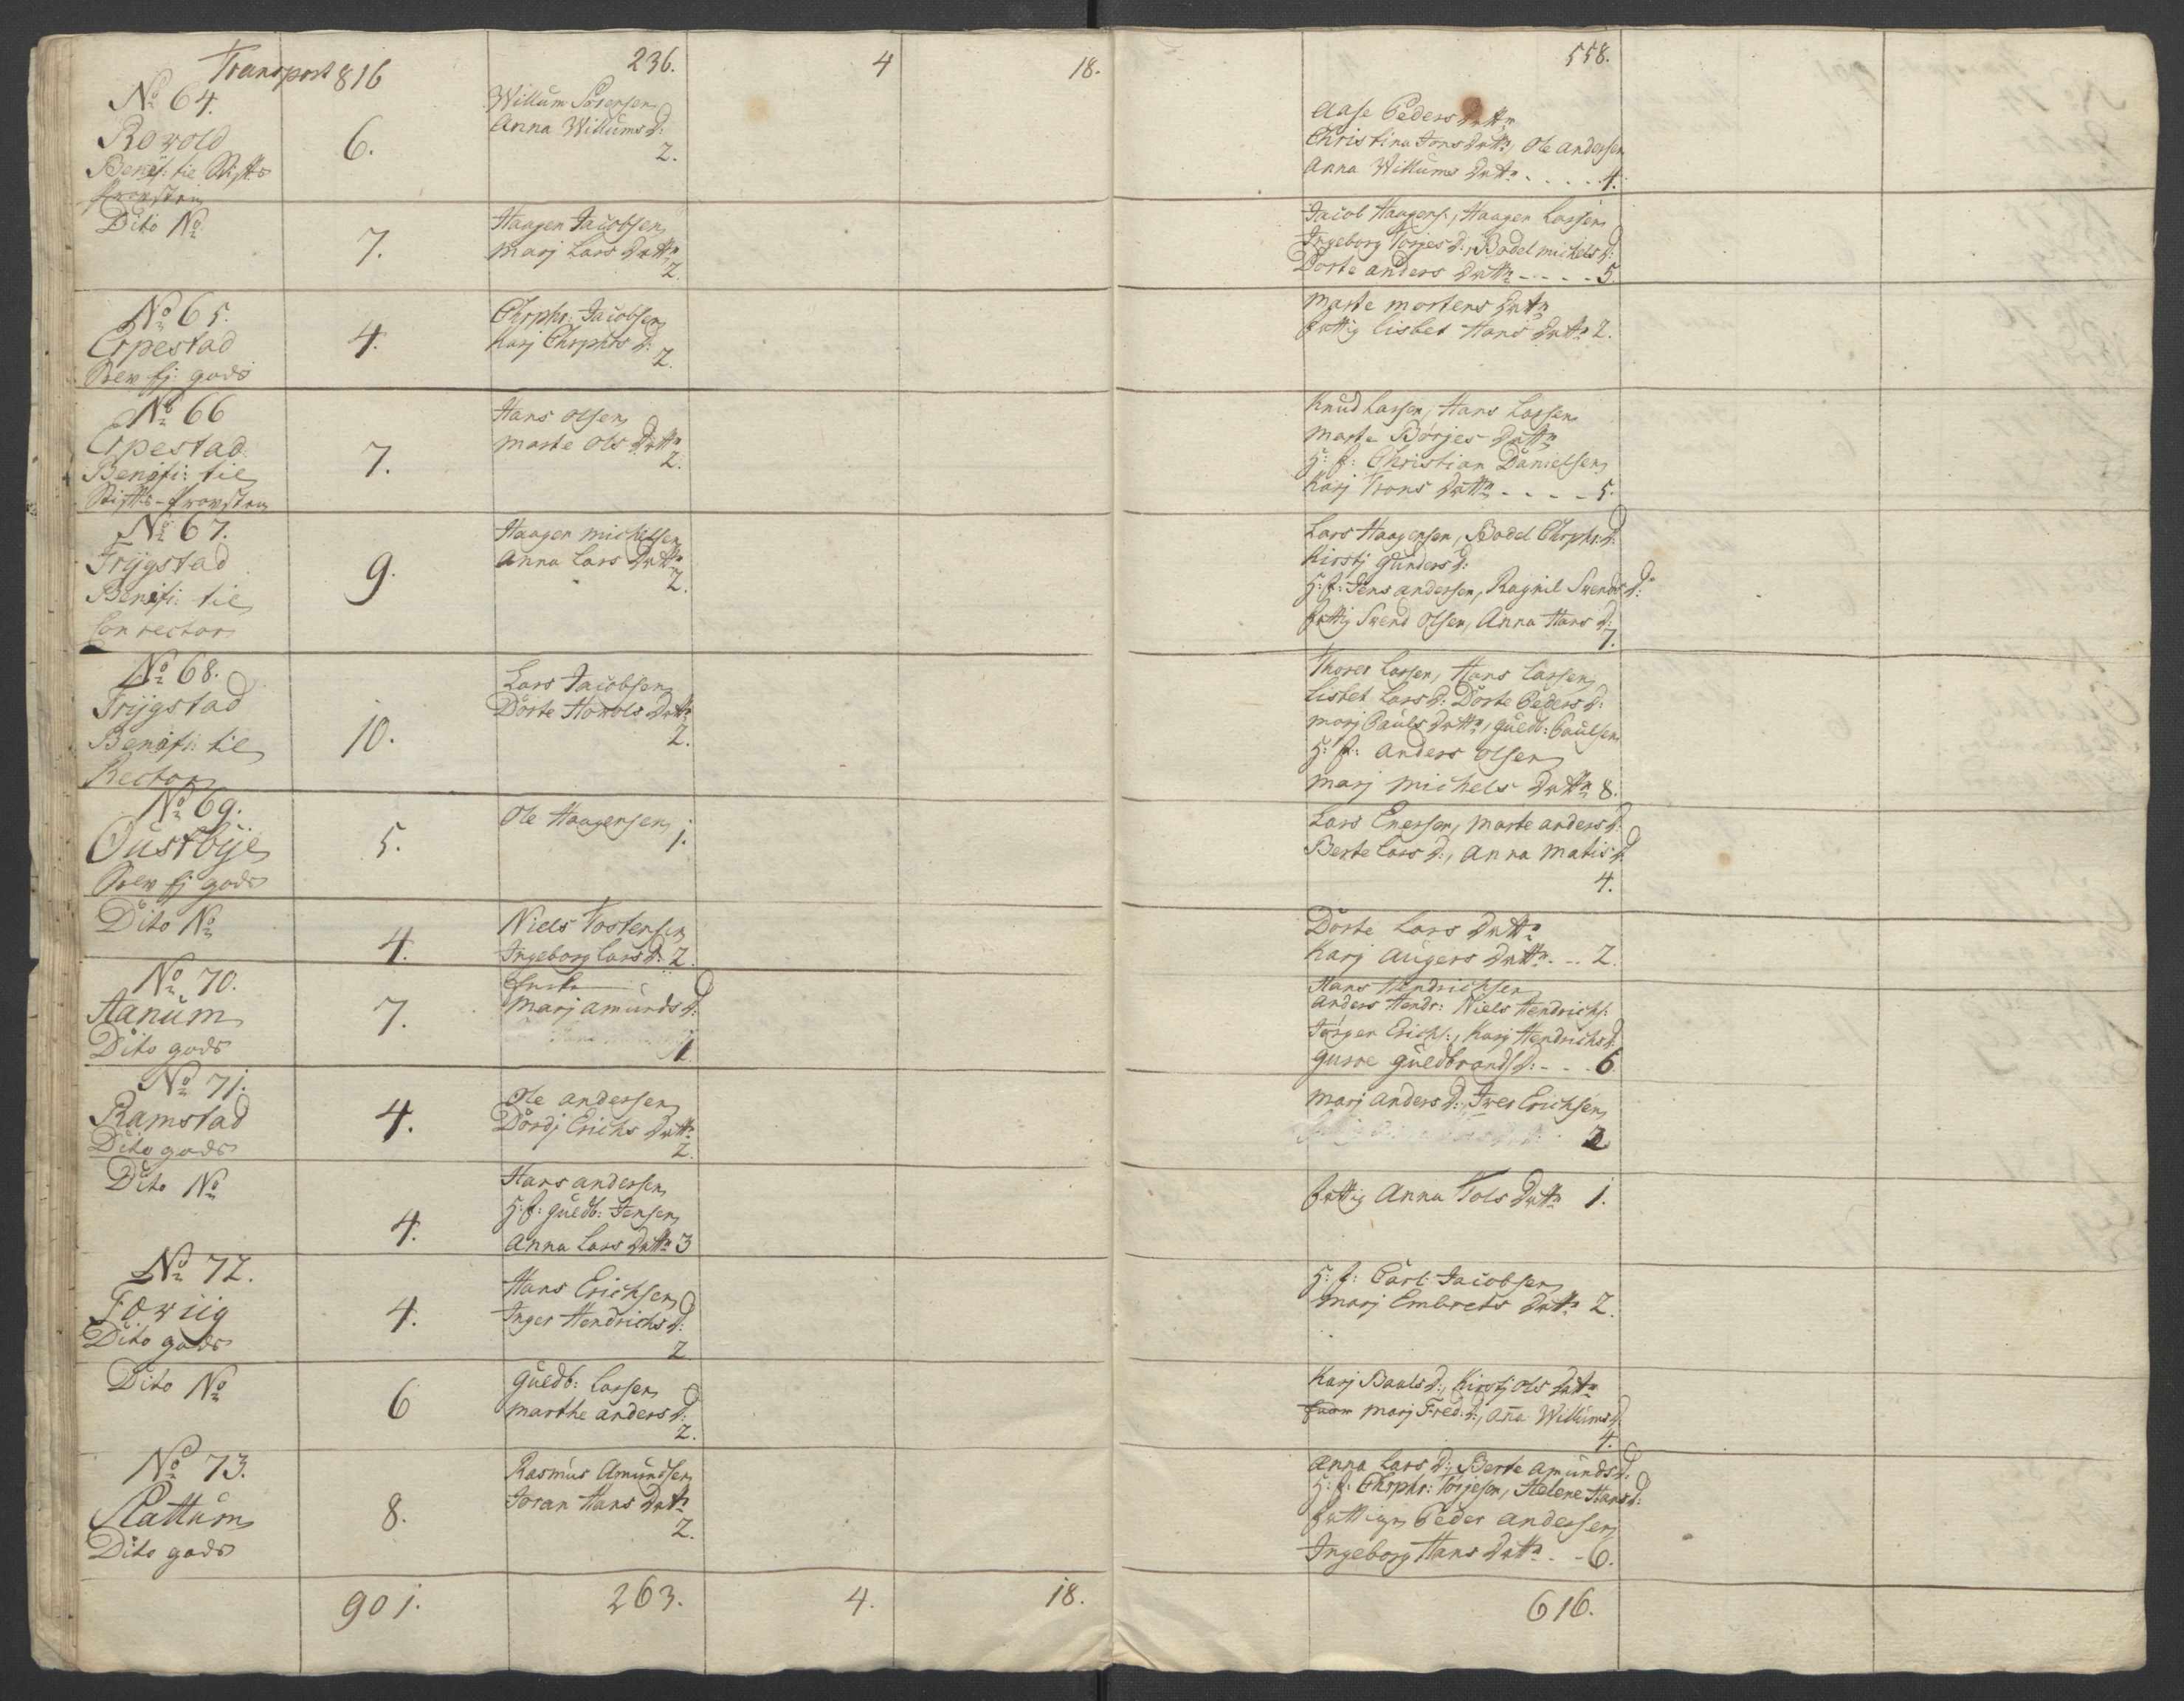 Transport 816 236. 4 18. 558.
No 64.
Rovold
Benef: til Stifts
Provsten
6.
Willum Sörensen
Anna Willums D:
2.
Aase Peders Datt
Christina Jons Datt, Ole Andersen
Anna Willums Datt - - - - 4.
Dito No
7.
Haagen Jacobsen
Marj Lars Datt
2.
Jacob Haagens:, Haagen Larsen
Ingeborg Torjes D:, Bodel Michels D:
Dorte Anders Datt - - - - 5.
No 65.
Erpestad
4.
Chrphr: Jacobsen
Karj Chrphrs D:
2.
Marte Mortens Datt
fattig Lisbet Hans Datt 2.
No 66
Erpestad
Benefi: til
Stifts-Provsten
7.
Hans Olsen
Marte Ols Datt
2.
Knud Larsen, Hans Larsen
Marte Börjes Datt
H: f: Christian Danielsen
Karj Trons Datt - - - - 5.
No 67.
Frijgstad
Benefi: til
Conrector
9.
Haagen Michelsen
Anna Lars Datt
2.
Lars Haagensen, Bodel Chrphr: D:
Kirstj Gunders D:
H: f: Jens Andersen, Ragnil Swends D:
fattig Swend Olsen, Anna Hans D:
7.
No 68.
Frijgstad
Benefi: til
Rector
10.
Lars Jacobsen
Dorte Howols Datt
2.
Thores Larsen, Hans Larsen
Lisbet Lars D: Dorte Peders D:
Marj Pauls Datt, Guldb: Paulsen
H: f: Anders Olsen
Marj Michels Datt 8.
No 69.
Oustbye
5.
Ole Haagensen
1.
Lars Enersen, Marte Anders D:
Berte Lars D:, Anna Matis D:
4.
Dito No
4.
Niels Tostensen
Ingeborg Lars D: 2.
Dorte Lars Datt
Karj Augers Datt - - 2.
No 70.
Hanum
Dito gods
7.
Enke
Marj Amunds D:
1
Hans Hendrichsen
Anders Hendr: Niels Hendrichs:
Jörgen Erichs:, Karj Hendrichs D:
Gurre Guldbrands D: - - - 6.
No 71.
Ramstad
Dito gods
4.
Ole Andersen
Dordj Erichs Datt
2.
Marj Anders D:, Iver Erichsen
2
Dito No
4.
Hans Andersen
H: f: Guldb: Jensen
Anna Lars Datt 3
fattig Anna Tols Datt 1.
No 72.
Dito gods
4.
Hans Erichsen
Inger Hendrichs D:
2
H: f: Carl Jacobsen
Marj Embrets Datt 2.
Dito No
6
Guldb: Larsen
Marthe Anders D:
2.
Karj Pauls D:, Kirstj Ols Datt
Marj Fred: D:, Aña Willums D:
4.
No 73.
Slattum
Dito gods
8.
Rasmus Amundsen
Joran Hans Datt
2.
Anna Lars D:, Berte Amunds D:
H: f: Chrphr: Törjesen, Helene Hans D:
fattige Peder Andersen
Ingeborg Hans Datt - - 6.
901. 263. 4. 18. 616.